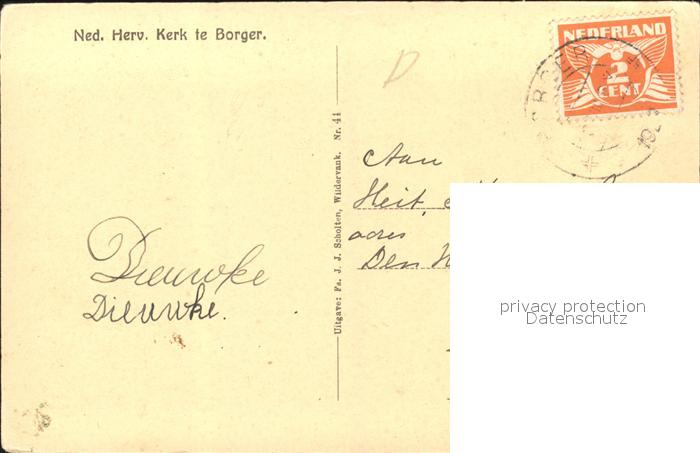 Ned. Herv. Kerk te Borger.
NEDERLAND
2
CENT
BORGER
Uitgave: Fa. J. J. Scholten, Wildervank. Nr. 44
Aan
Heit,
adres
Den
Dieuwke
Dieuwke.
privacy protection
Datenschutz